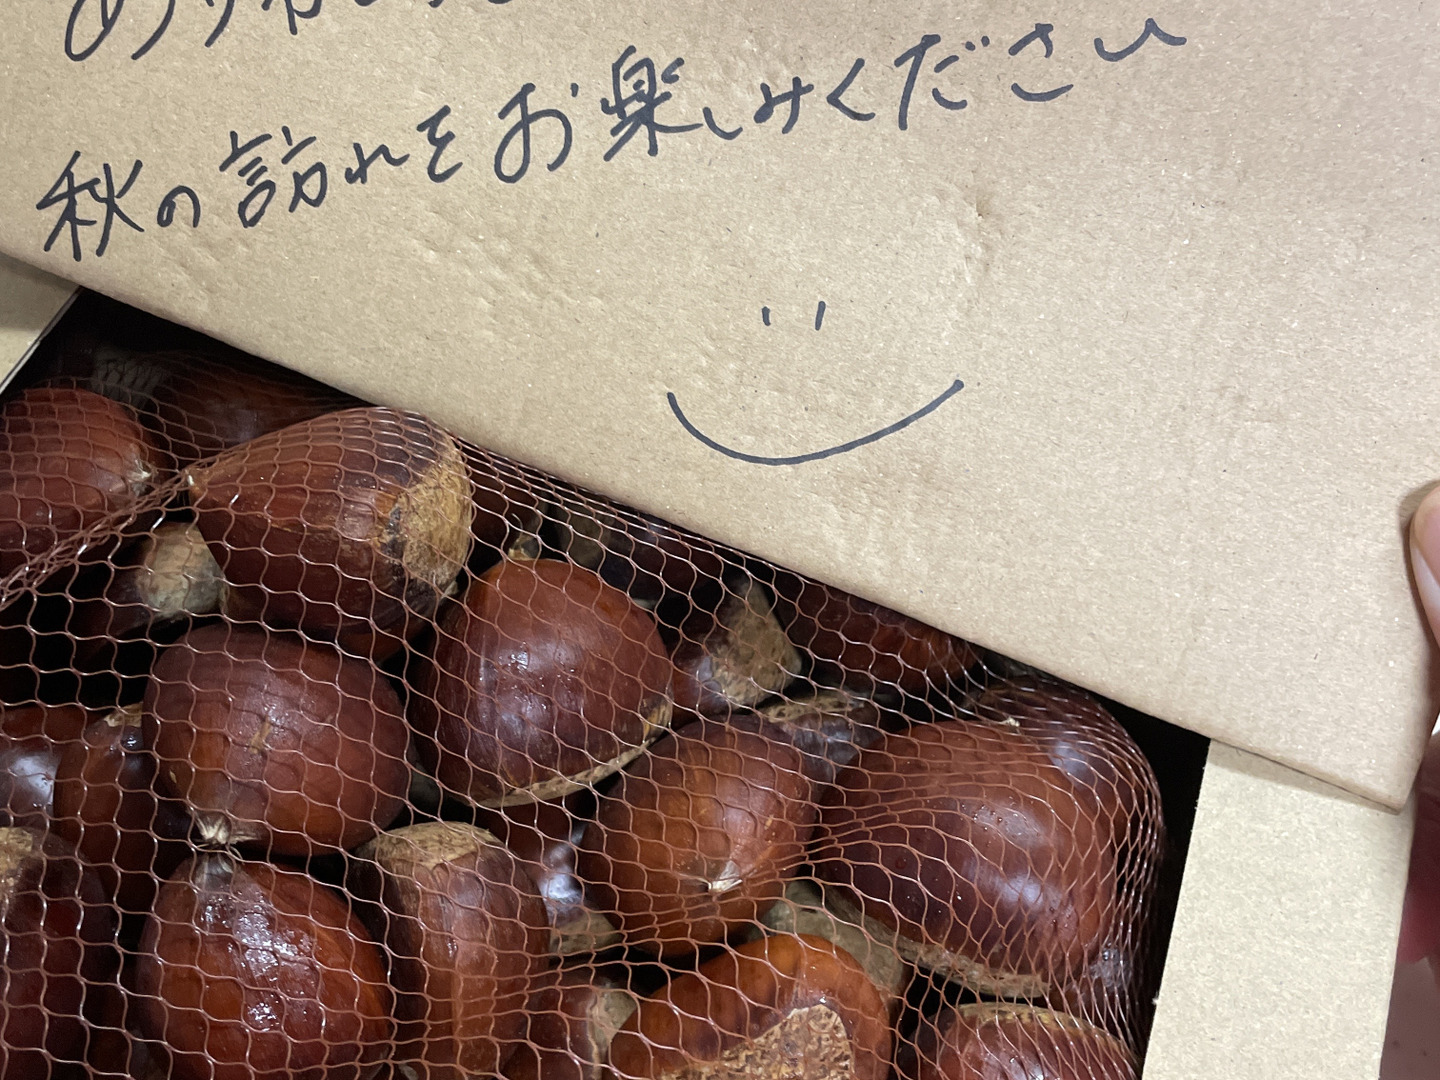 秋の訪れをお楽しみください